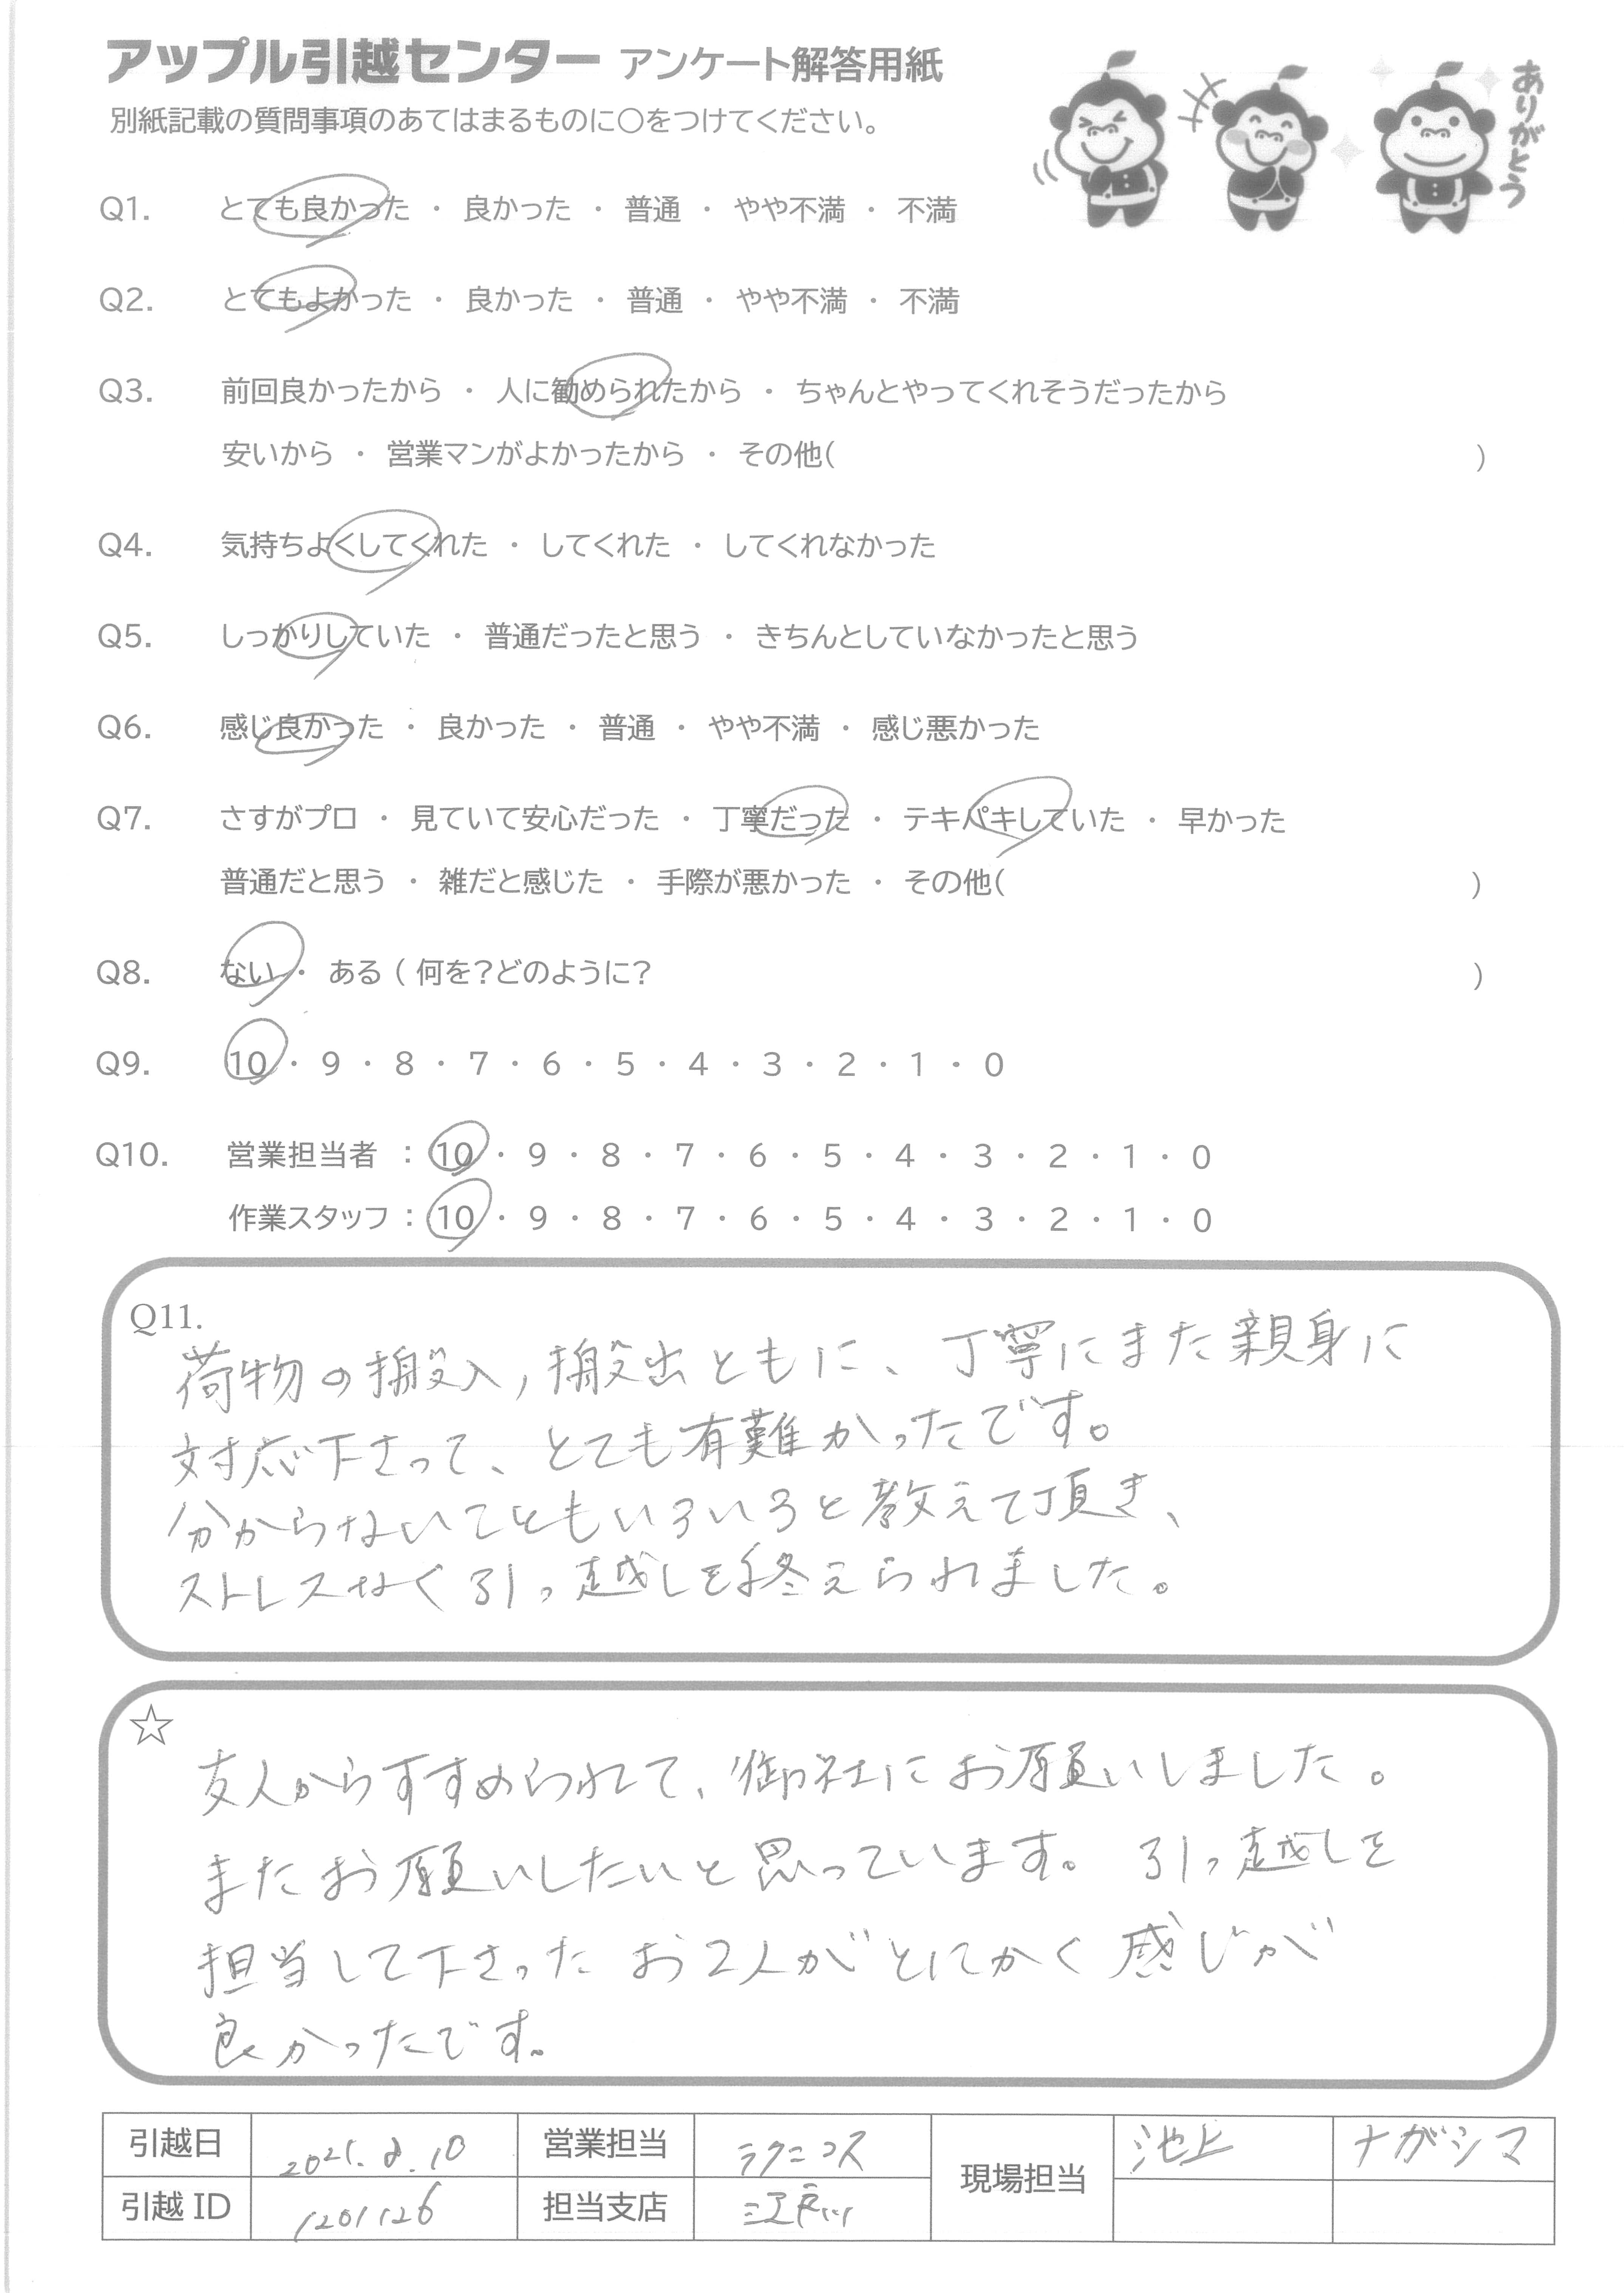 アップル引越センター アンケート解答用紙
別紙記載の質問事項のあてはまるものに〇をつけてください。
ありがとう
Q1. とても良かった ・ 良かった ・ 普通 ・ やや不満 ・ 不満
Q2. とてもよかった ・ 良かった ・ 普通 ・ やや不満 ・ 不満
Q3. 前回良かったから ・ 人に勧められたから ・ ちゃんとやってくれそうだったから
安いから ・ 営業マンがよかったから ・ その他( )
Q4. 気持ちよくしてくれた ・ してくれた ・ してくれなかった
Q5. しっかりしていた ・ 普通だったと思う ・ きちんとしていなかったと思う
Q6. 感じ良かった ・ 良かった ・ 普通 ・ やや不満 ・ 感じ悪かった
Q7. さすがプロ ・ 見ていて安心だった ・ 丁寧だった ・ テキパキしていた ・ 早かった
普通だと思う ・ 雑だと感じた ・ 手際が悪かった ・ その他( )
Q8. ない ・ ある ( 何を?どのように? )
Q9. 10 ・ 9 ・ 8 ・ 7 ・ 6 ・ 5 ・ 4 ・ 3 ・ 2 ・ 1 ・ 0
Q10. 営業担当者 : 10 ・ 9 ・ 8 ・ 7 ・ 6 ・ 5 ・ 4 ・ 3 ・ 2 ・ 1 ・ 0
作業スタッフ : 10 ・ 9 ・ 8 ・ 7 ・ 6 ・ 5 ・ 4 ・ 3 ・ 2 ・ 1 ・ 0
Q11.
荷物の搬入,搬出ともに、丁寧にまた親身に
対応下さって、とても有難かったです。
分からないこともいろいろと教えて頂き、
ストレスなく引っ越しを終えられました。
☆
友人からすすめられて、御社にお願いしました。
またお願いしたいと思っています。引っ越しを
担当して下さったお2人がとにかく感じが
良かったです。
引越日 2021.8.10 営業担当 ラクニコス 現場担当 池上 ナガシマ
引越ID 1201126 担当支店